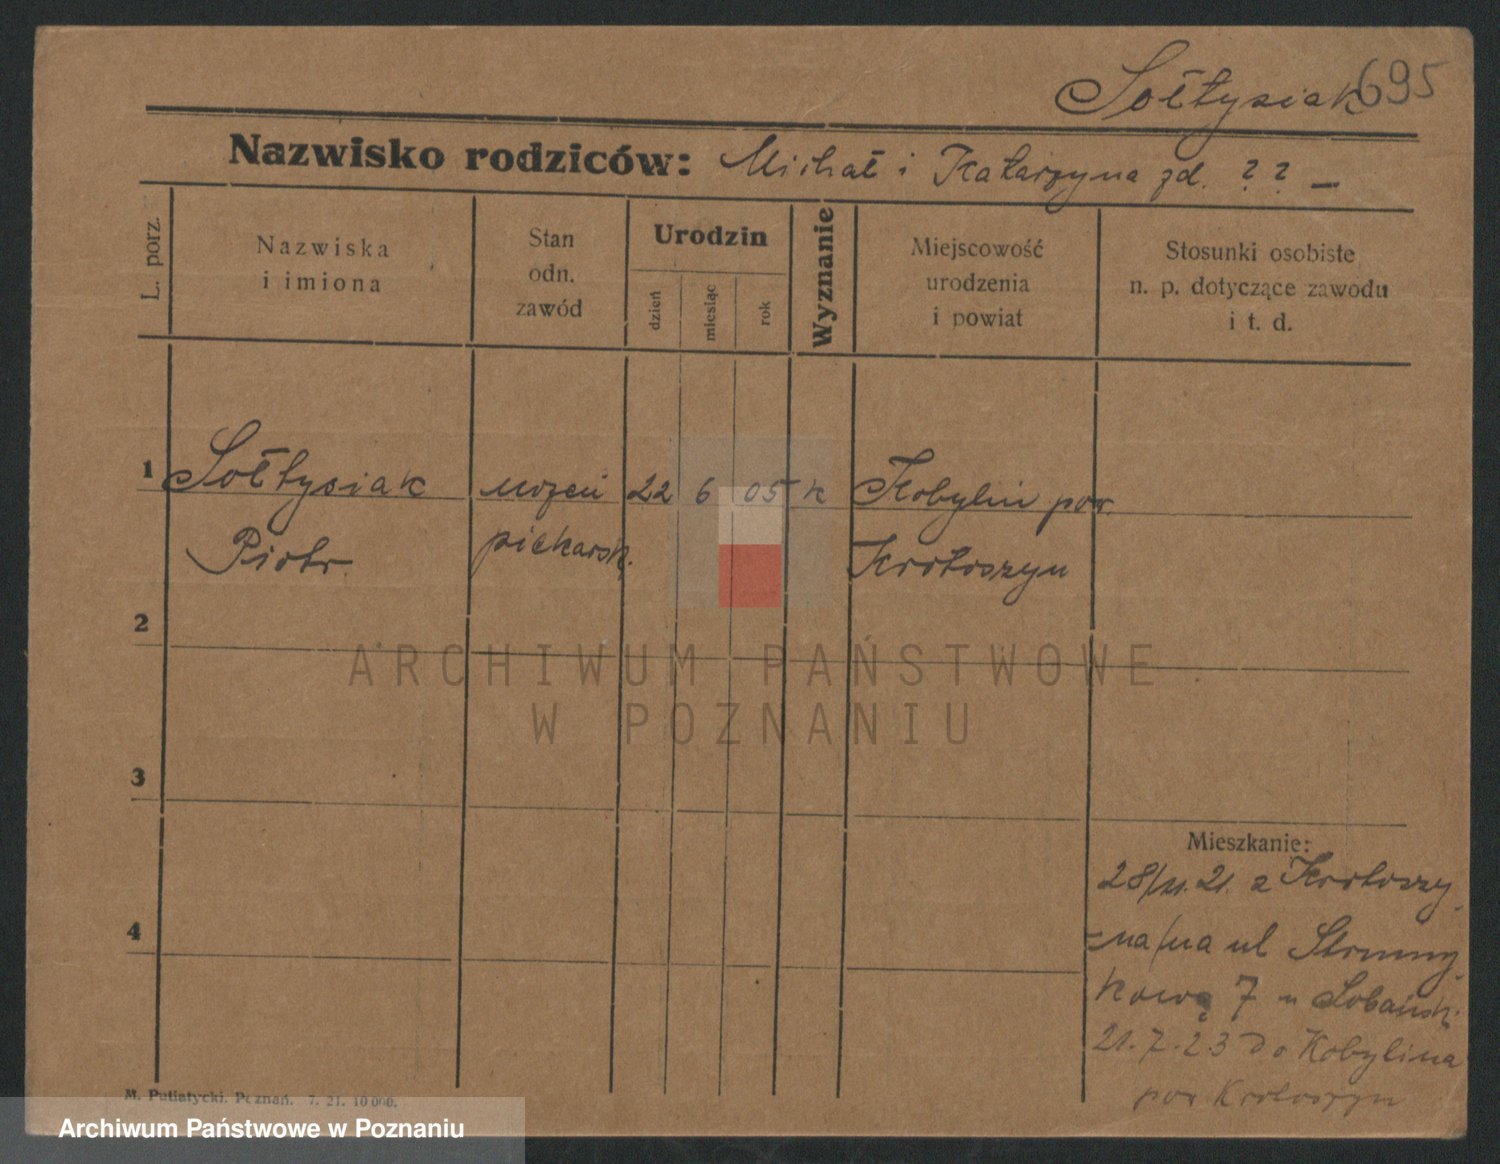 Sołtysiak 695
Nazwisko rodziców: Michał i Katarzyna zd. ? ? —
L. porz.
Nazwiska
i imiona
Stan
odn.
zawód
Urodzin
dzień
miesiąc
rok
Wyznanie
Miejscowość
urodzenia
i powiat
Stosunki osobiste
n. p. dotyczące zawodu
i t. d.
1 Sołtysiak uczeń 22 6 05 k Kobylin pow.
Piotr piekarsk. Krotoszyn
2
ARCHIWUM PAŃSTWOWE
W POZNANIU
3
Mieszkanie:
21. z Krotoszy-
4
=na/na ul Strumy-
kową 7 u Łobańsk.
21.7.23 do Kobylina
pow Krotoszyn
M. Putiatycki. Poznań. 7. 21. 10 000.
Archiwum Państwowe w Poznaniu